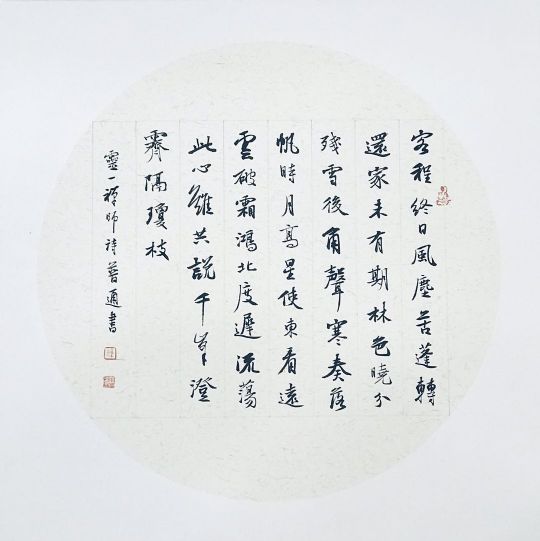 客程終日風塵苦蓬轉
還家未有期林色曉分
殘雪後角聲寒奏落
帆時月高星使東看遠
雲破霜鴻北度遲流蕩
此心難共說千峯澄
霽隔瓊枝
靈一禪師詩普通書